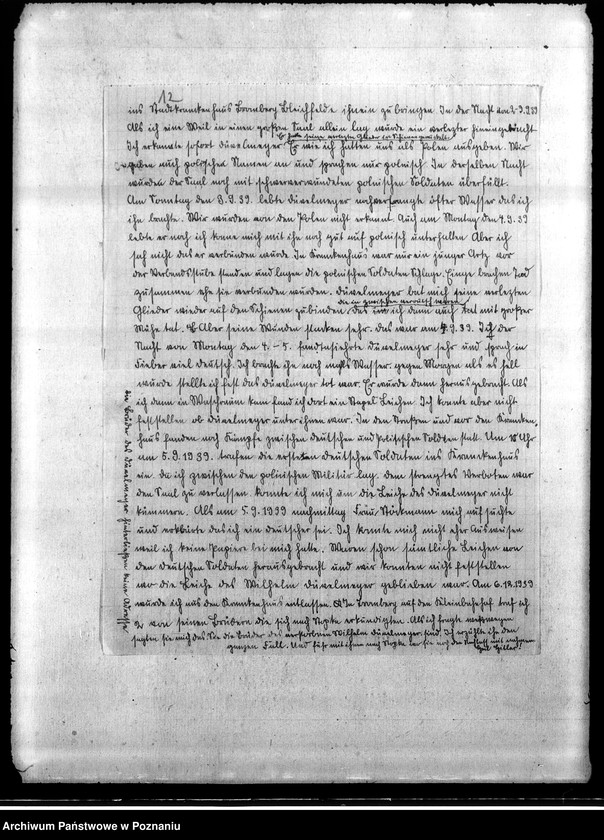 12
ins Stadtkrankenhaus Bromberg Bleichfelde ihnein zu bringen. In der Nacht von 2-3.9.39
Als ich eine Weil in einen großen Saal allein lag wurde ein verlezter hineingebracht
Er hatte seine verlezten Glieder in Schienen gewickelt
Ich erkannte sofort Düvelmeyer. Er wie ich hatten uns als Polen ausgeben. Wir
gaben auch polnischen Namen an und sprachen nur polnisch In derselben Nacht
wurden der Saal noch mit schwerverwundeten polnischen Soldaten überfüllt.
Am Sonntag den 3.9.39. lebte Düvelmeyer noch verlangte öfter Wasser das ich
ihn brachte. Wir wurden von den Polen nicht erkannt. Auch am Montag den 4.9.39
lebte er noch ich konne mich mit ihn noch gut auf polnisch unterhalten Aber ich
sah nicht das er verbunden wurde. In Krankenhaus war nur ein junger Artz vor
der Verbandsstube standen und lagen die polnischen Soldaten Schlage. Einge brachen Tod
zusammen ehe sie verbunden wurden. Düvelmeyer bat mich seine verlezten
die in zwischen verrutscht waren
Glieder wieder auf den Schienen zubinden, das ich dann auch tat mit großer
Mühe tat. Aber seine Wunden stanken sehr. das war am 4.9.39. In der
Nacht von Montag den 4.-5. fantasierte Düvelmeyer sehr und sprach in
Fieber viel deutsch. Ich brachte ihn noch Wasser. gegen Morgen als es hell
wurde stellte ich fest das Düvelmeyer tot war. Er wurde dann herausgebracht. Als
ich dann in Waschraum kam fand ich dort ein Stapel Leichen Ich konnte aber nicht
feststellen ob Düvelmeyer unter ihnen war. In den Straßen und vor den Kranken,
haus fanden noch Kämpfe zwischen deutschen und polnischen Soldaten statt. Um 18 Uhr
am 5.9.1939. trafen die ersten deutschen Soldaten ins Krankenhaus
ein. da ich zwischen den polnischen Militär lag. dem strengtes Verboten war
den Saal zu verlassen. konnte ich mich um die Leiche des Düvelmeyer nicht
kümmern. Als am 5.9.1939 nachmittag Frau Stöckmann mich aufsuchte
und erklärte das ich ein deutscher sei. Ich konnte mich nicht eher Ausweisen
weil ich keine Papiere bei mich hatte. Waren schon sämtliche Leichen von
den deutschen Soldaten herausgebracht und wir konnten nicht feststellen
wo die Leiche des Wilhelm Düvelmeyer geblieben war. Am 6.12.1939
wurde ich aus den Krankenhaus entlassen. In Bromberg auf den Kleinbahnhof traf ich
2 von seinen Brüdern die sich nach erkündigten. Als ich fragte weswegen
sagten sie mich das Sie die Brüder des verstorbenen Wilhelm Düvelmeyer sind. Ich erzählte ihn den
ganzen Fall. Und fuhr mit ihnen nach
Die Brüder des Düvelmeyer hinterließen keine Adresse
Archiwum Państwowe w Poznaniu